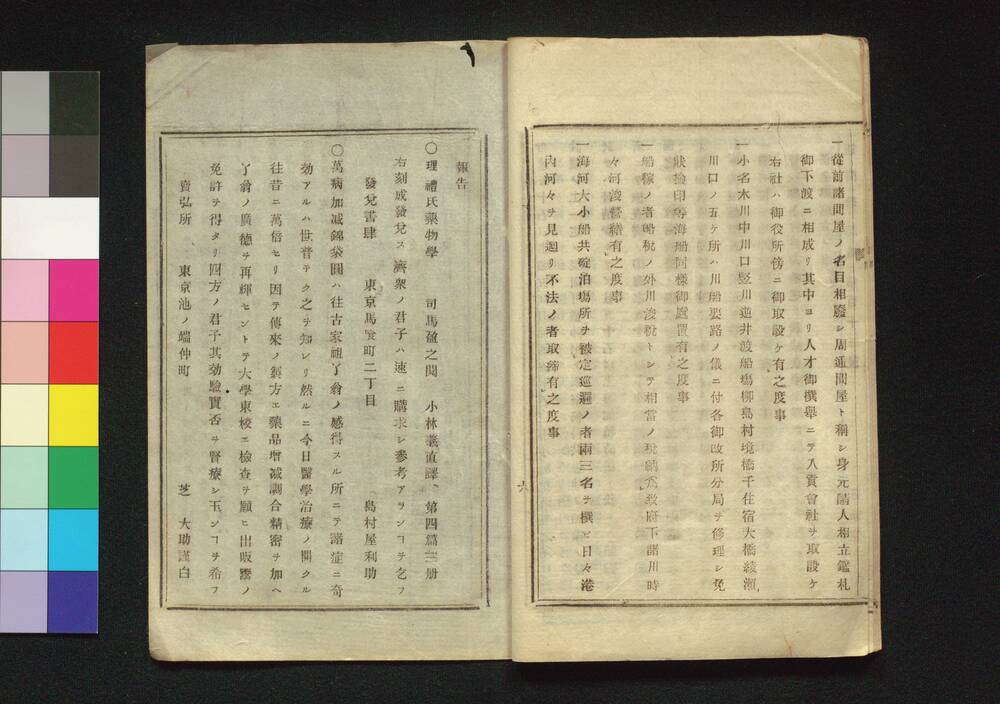 一從前諸問屋ノ名目相廢シ周通問屋ト稱シ身元請人相立鑑札
御下渡ニ相成リ其中ヨリ人才御撰擧ニテ入貢會社ヲ取設ケ
右社ハ御役所傍ニ御取設ケ有之度事
一小名木川中川口竪川逆井渡船塲柳島村境橋千住宿大橋綾瀬
川口ノ五ケ所ハ川船要路ノ儀ニ付各御改所分局ヲ修理シ免
狀撿印等海船同樣御處置有之度事
一船稼ノ者船税ノ外川浚税トシテ相當ノ税納爲致府下諸川時
々河浚營繕有之度事
一海河大小船共碇泊塲所ヲ被定巡邏ノ者兩三名ヲ撰ヒ日々港
内河々ヲ見廻リ不法ノ者取締有之度事
六
報告
〇理禮氏藥物學 司馬盈之閲 小林義直譯 第四篇三册
右刻成發兌ス濟衆ノ君子ハ速ニ購求シ參考アランコヲ乞フ
發兌書肆 東京馬喰町二丁目 島村屋利助
〇萬病加减錦袋圓ハ往古家祖了翁ノ感得スル所ニテ諸症ニ奇
効アルハ世普テク之ヲ知レリ然ルニ今日醫學治療ノ開クル
往昔ニ萬倍セリ因テ傳來ノ劑方エ藥品增减調合精密ヲ加ヘ
了翁ノ廣德ヲ再輝セントテ大學東校エ檢查ヲ願ヒ出販鬻ノ
免許ヲ得タリ四方ノ君子其効驗實否ヲ賢療シ玉ンコヲ希フ
賣弘所 東京池ノ端仲町 芝 大助謹白